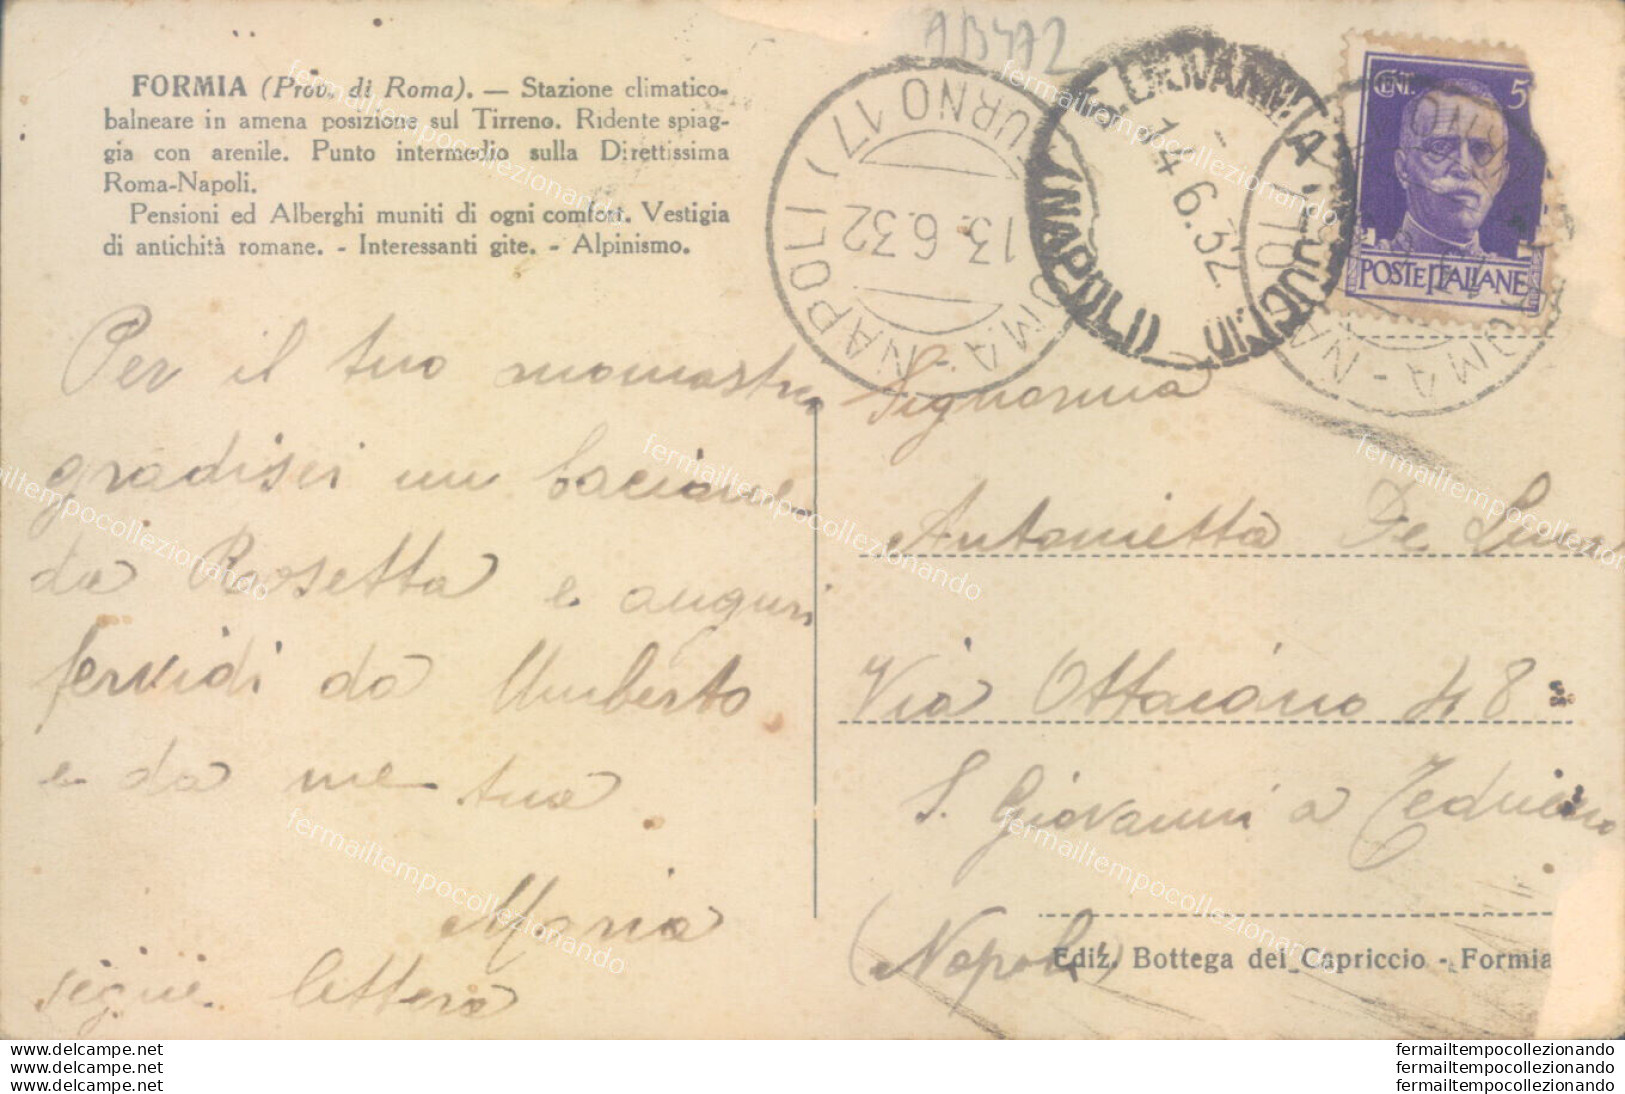 AB472
FORMIA (Prov. di Roma). — Stazione climatico-
balneare in amena posizione sul Tirreno. Ridente spiag-
gia con arenile. Punto intermedio sulla Direttissima
Roma-Napoli.
Pensioni ed Alberghi muniti di ogni comfort. Vestigia
di antichità romane. - Interessanti gite. - Alpinismo.
ROMA-NAPOLI (17)
13.6.32
S. GIOVANNI A TEDUCCIO
14.6.32
(NAPOLI)
CENT. 5
POSTE ITALIANE
Per il tuo
gradisci un
da Rosetta e auguri
fervidi da Umberto
e da me tua
Maria
segue lettera
Signorina
Antonietta De Luca
Via Ottaiano 48
S. Giovanni a Teduccio
(Napoli)
Ediz. Bottega del Capriccio - Formia
www.delcampe.net
www.delcampe.net
www.delcampe.net
fermailtempocollezionando
fermailtempocollezionando
fermailtempocollezionando